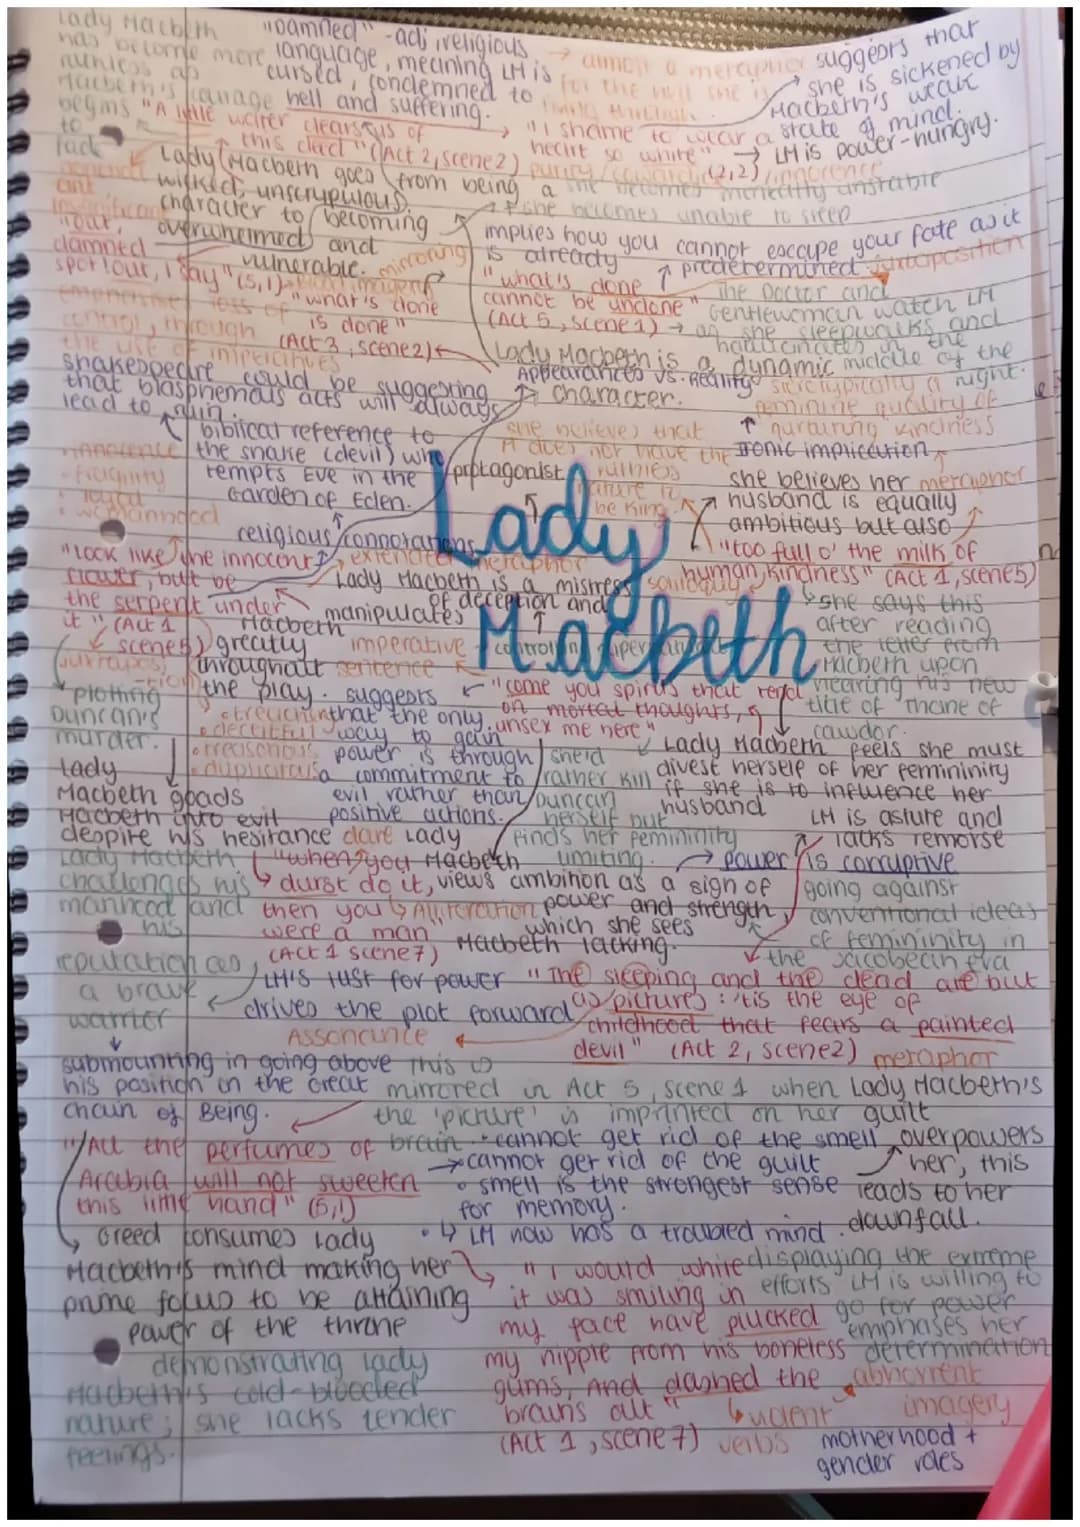 Lady Macbeth
has become more
ruthless as
Macbeth's
begins
to
lack
"Damned" - adj, religious
language, meaning LM is
cursed, condemned to
hell and suffering.
almost a metaphor
for the hell she is
living through.
suggests that
she is sickened by
Macbeth's weak
state of mind.
LM is power-hungry.
"A little water clears us of
this deed" (Act 2, scene 2)
"I shame to wear a
heart so white"
(2,2)
purity/cowardice/innocence
Lady Macbeth goes from being a
wicked, unscrupulous
character to becoming
overwhelmed and
vulnerable.
she becomes mentally unstable
she becomes unable to sleep
implies how you cannot escape your fate as it
is already predetermined
juxtaposition
"out,
damned
spot! out, I say" (5,1)
blood imagery
mirroring
emphasises loss of
control, through
the use of imperatives
"what's done
is done"
(Act 3, scene 2)
"what's done
cannot be undone"
(Act 5, scene 1)
The Doctor and
Gentlewoman watch LM
as she sleepwalks and
hallucinates in the
middle of the
night.
Lady Macbeth is a dynamic
character.
Appearances vs. Reality
Shakespeare could be suggesting
that blasphemous acts will always
lead to ruin.
biblical reference to
the snake (devil) who
tempts Eve in the
Garden of Eden.
religious connotations
stereotypically a
feminine quality of
nurturing kindness
Ironic implication
she believes that
M does not have the
ruthless
nature to
be King.
protagonist
she believes her
husband is equally
ambitious but also
metaphor
"too full o' the milk of
human kindness" (Act 1, scene 5)
soliloquy
• innocence
• fragility
• womanhood
Lady
Macbeth
"Look like the innocent
flower, but be
the serpent under
it" (Act 1
scene 5)
juxtaposition
extended metaphor
Lady Macbeth is a mistress
of deception and
manipulates
Macbeth
greatly
throughout
the play.
she says this
after reading
the letter from
Macbeth upon
hearing his new
title of Thane of
Cawdor.
imperative
sentence
controlling
plotting
Duncan's
murder.
• deceitful
• treasonous
• duplicitous
suggests
that the only
way to gain
power is through
a commitment to
evil rather than
positive actions.
"come you spirits that tend
on mortal thoughts,
unsex me here"
she'd
rather kill
Duncan
herself but
finds her femininity
limiting.
Lady Macbeth feels she must
divest herself of her femininity
if she is to influence her
husband
Lady
Macbeth goads
Macbeth into evil
despite his hesitance
dare
LM is astute and
lacks remorse
power is corruptive
Lady Macbeth
challenges his
manhood and
his
reputation as
a brave
warrior
"when you
durst do it,
then you
were a man"
(Act 1 scene 7)
Alliteration
Lady
Macbeth
views ambition as a sign of
power and strength,
which she sees
Macbeth lacking.
going against
conventional ideas
of femininity in
the Jacobean era
LM's lust for power
drives the plot forward
Assonance
"The sleeping and the dead are but
as pictures: 'tis the eye of
childhood that fears a painted
devil" (Act 2, scene 2)
metaphor
submounting in going above
his position in the Great
Chain of Being.
This is
mirrored in Act 5, scene 1 when Lady Macbeth's
the 'picture' is imprinted on her
brain
guilt
overpowers
her, this
leads to her
downfall.
"All the perfumes of
Arabia will not sweeten
this little hand" (5,1)
• cannot get rid of the smell
→ cannot get rid of the guilt
• smell is the strongest sense
for memory.
• LM now has a troubled mind.
Greed consumes Lady
Macbeth's mind making her
prime focus to be attaining
power of the throne
demonstrating Lady
Macbeth's cold-blooded
nature; she lacks tender
feelings.
"I would while
it was smiling in
my face have plucked
my nipple from his boneless
gums, And dashed the
brains out"
(Act 1, scene 7)
displaying the extreme
efforts LM is willing to
go for power
emphases her
determination
abhorrent
imagery
violent
verbs
motherhood +
gender roles